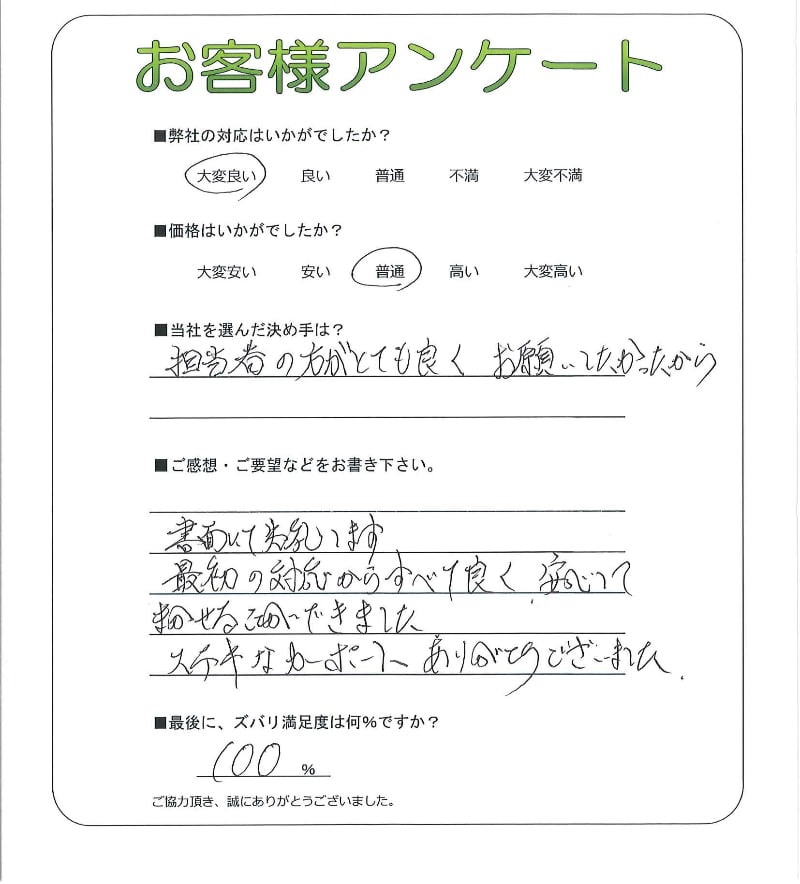 お客様アンケート
■弊社の対応はいかがでしたか？
大変良い 良い 普通 不満 大変不満
■価格はいかがでしたか？
大変安い 安い 普通 高い 大変高い
■当社を選んだ決め手は？
担当者の方がとても良く お願いしたかったから
■ご感想・ご要望などをお書き下さい。
書面にて失礼します
最初の対応からすべて良く 安心して
まかせることができました
ステキなカーポート ありがとうございました.
■最後に、ズバリ満足度は何%ですか？
100 %
ご協力頂き、誠にありがとうございました。